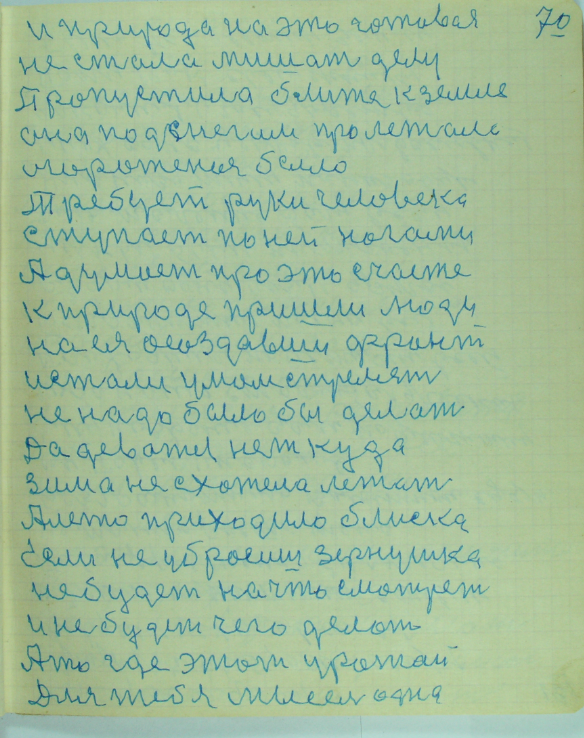 и природа на это готовая 70
не стала мишат делу
Пропустила ближе к земле
она под снегим пролежала
огорожения было
Требует руки человека
ступает по ней ногами
А думает про это счастье
к природе пришли люди
на ея создавши фронт
и стали умом стрелят
не надо было бы делат
Да деватся неткуда
Зима не схотела лежат
А лето приходило блиска
Если не убросиш зернушка
не будет на чть смотрет
и не будет чего делат
А то где этот урожай
Для тебя мысел одна